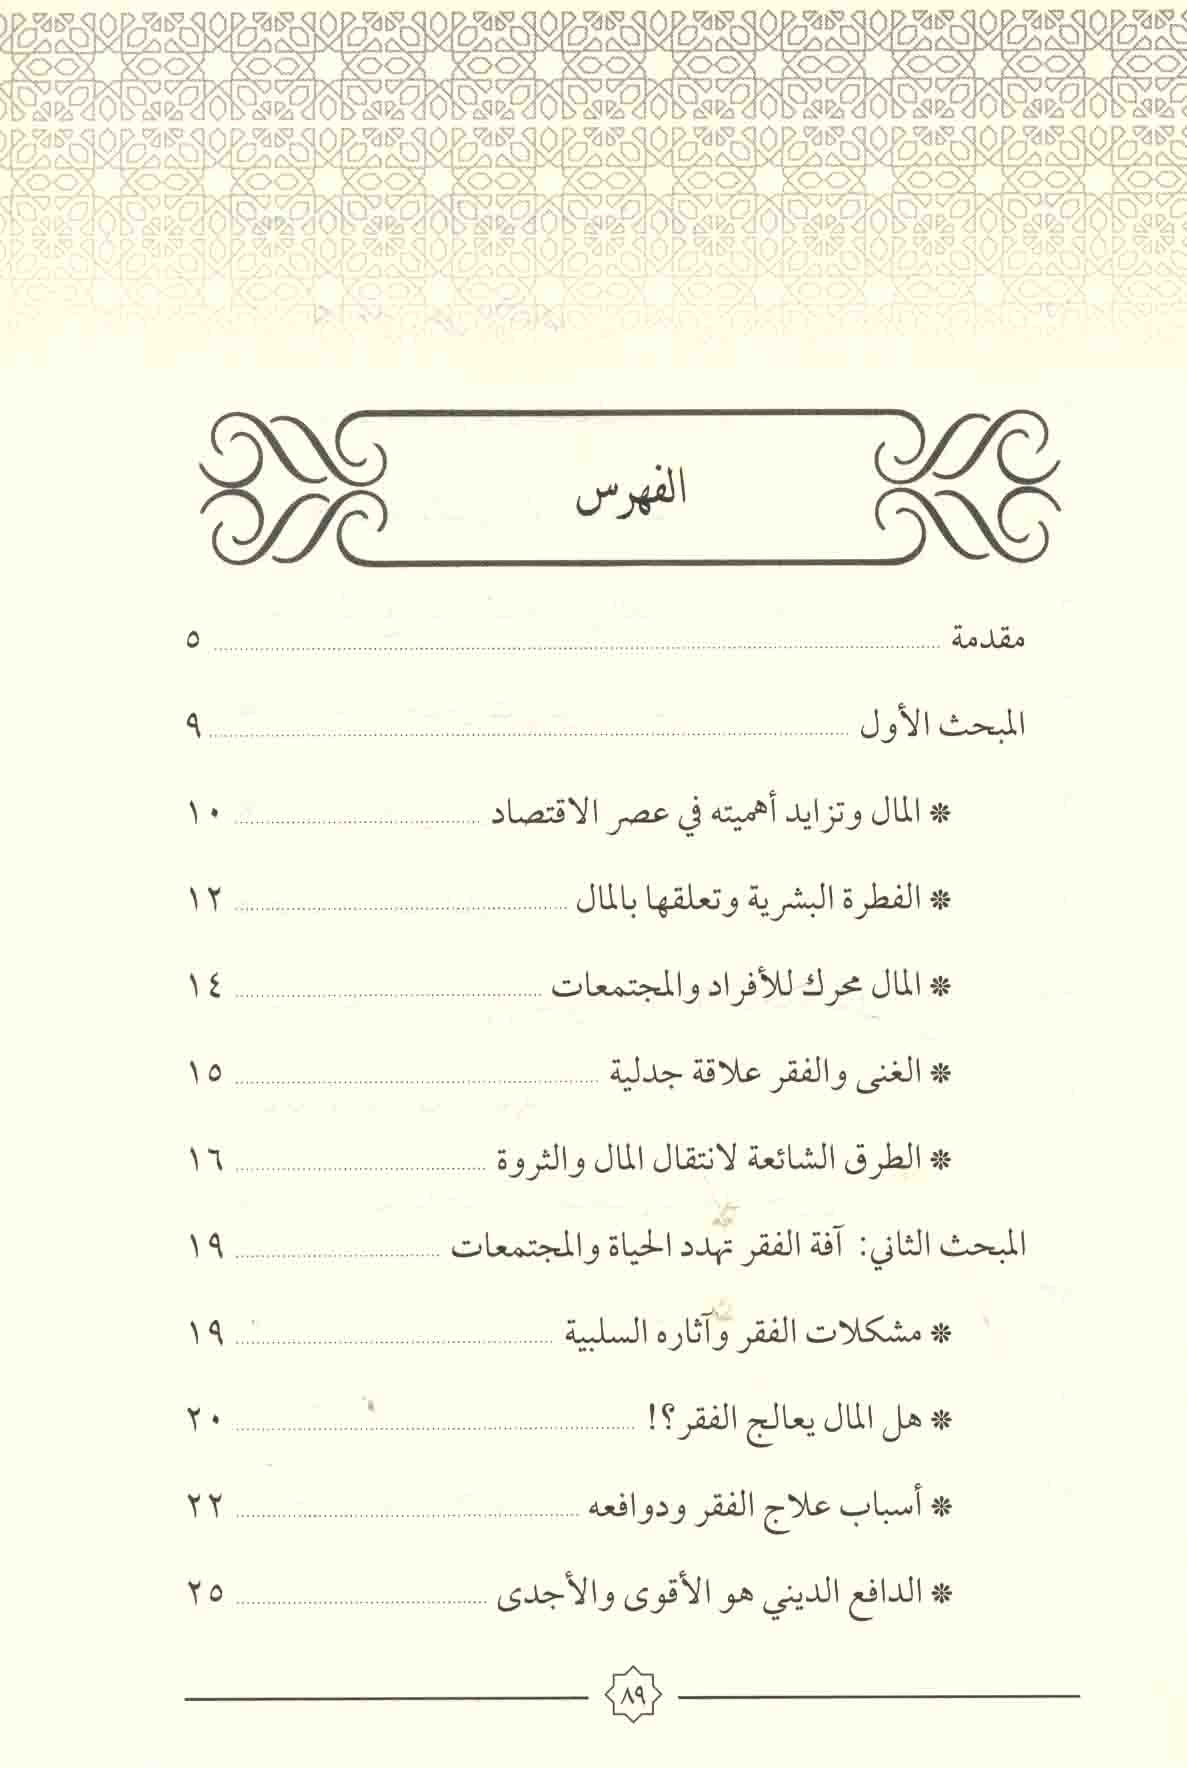 الفهرس
مقدمة ٥
المبحث الأول ٩
❋ المال وتزايد أهميته في عصر الاقتصاد ١٠
❋ الفطرة البشرية وتعلقها بالمال ١٢
❋ المال محرك للأفراد والمجتمعات ١٤
❋ الغنى والفقر علاقة جدلية ١٥
❋ الطرق الشائعة لانتقال المال والثروة ١٦
المبحث الثاني: آفة الفقر تهدد الحياة والمجتمعات ١٩
❋ مشكلات الفقر وآثاره السلبية ١٩
❋ هل المال يعالج الفقر؟! ٢٠
❋ أسباب علاج الفقر ودوافعه ٢٢
❋ الدافع الديني هو الأقوى والأجدى ٢٥
٨٩